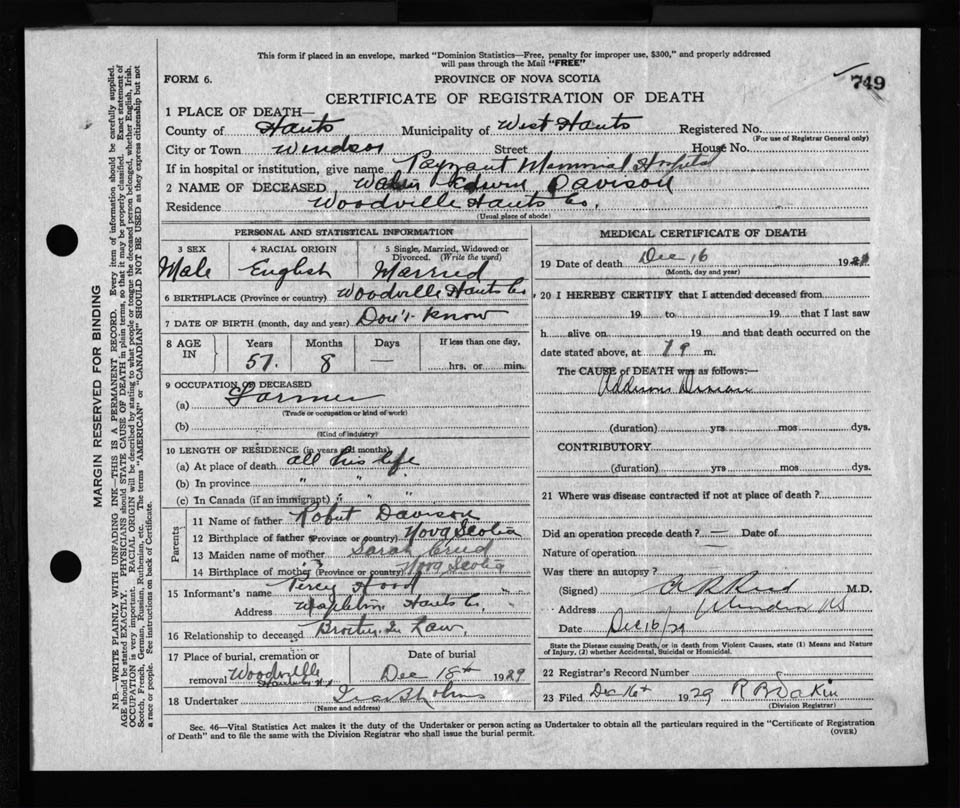 This form if placed in an envelope, marked "Dominion Statistics—Free, penalty for improper use, $300," and properly addressed
will pass through the Mail "FREE"
FORM 6.
PROVINCE OF NOVA SCOTIA
749
CERTIFICATE OF REGISTRATION OF DEATH
1 PLACE OF DEATH—
County of Hants Municipality of West Hants Registered No.
(For use of Registrar General only)
City or Town Windsor Street House No.
If in hospital or institution, give name Payzant Memorial Hospital
2 NAME OF DECEASED Edwin Davison
Residence Woodville Hants Co.
(Usual place of abode)
PERSONAL AND STATISTICAL INFORMATION
3 SEX 4 RACIAL ORIGIN 5 Single, Married, Widowed or
Divorced. (Write the word)
Male English Married
6 BIRTHPLACE (Province or country) Woodville Hants Co
7 DATE OF BIRTH (month, day and year) Don't Know
8 AGE IN Years Months Days If less than one day,
57. 8 — hrs. or min.
9 OCCUPATION OF DECEASED
(a) Farmer
(Trade or occupation or kind of work)
(b)
(Kind of industry)
10 LENGTH OF RESIDENCE (in years and months)
(a) At place of death all his life
(b) In province " " "
(c) In Canada (if an immigrant) " " "
Parents
11 Name of father Robert Davison
12 Birthplace of father (Province or country) Nova Scotia
13 Maiden name of mother Sarah
14 Birthplace of mother (Province or country) Nova Scotia
15 Informant's name Percy Hood
Address Mapleton Hants Co.
16 Relationship to deceased Brother In Law.
17 Place of burial, cremation or Date of burial
removal Woodville Dec 18th 1929
Hants
18 Undertaker
(Name and address)
MEDICAL CERTIFICATE OF DEATH
19 Date of death Dec 16 1929
(Month, day and year)
20 I HEREBY CERTIFY that I attended deceased from
19 to 19 that I last saw
h alive on 19 and that death occurred on
date stated above, at m.
The CAUSE of DEATH was as follows:—
Addisons Disease
(duration) yrs mos dys.
CONTRIBUTORY
(duration) yrs mos dys.
21 Where was disease contracted if not at place of death?
Did an operation precede death? — Date of
Nature of operation
Was there an autopsy?
(Signed) Reid M.D.
Address Windsor NS
Date Dec 16/29
State the Disease causing Death, or in death from Violent Causes, state (1) Means and Nature
of Injury, (2) whether Accidental, Suicidal or Homicidal.
22 Registrar's Record Number
23 Filed Dec 16th 1929 R B Dakin
(Division Registrar)
Sec. 46—Vital Statistics Act makes it the duty of the Undertaker or person acting as Undertaker to obtain all the particulars required in the "Certificate of Registration
of Death" and to file the same with the Division Registrar who shall issue the burial permit.
(OVER)
MARGIN RESERVED FOR BINDING
N.B.—WRITE PLAINLY WITH UNFADING INK—THIS IS A PERMANENT RECORD. Every item of information should be carefully supplied.
AGE should be stated EXACTLY. PHYSICIANS should STATE CAUSE OF DEATH in plain terms, so that it may be properly classified. Exact statement of
OCCUPATION is very important. RACIAL ORIGIN will be described by stating to what people or tongue the deceased person belonged, whether English, Irish,
Scotch, French, German, Russian, Ruthenian, etc. The terms "AMERICAN" or "CANADIAN" SHOULD NOT BE USED as they express citizenship but not
a race or people. See instructions on back of Certificate.